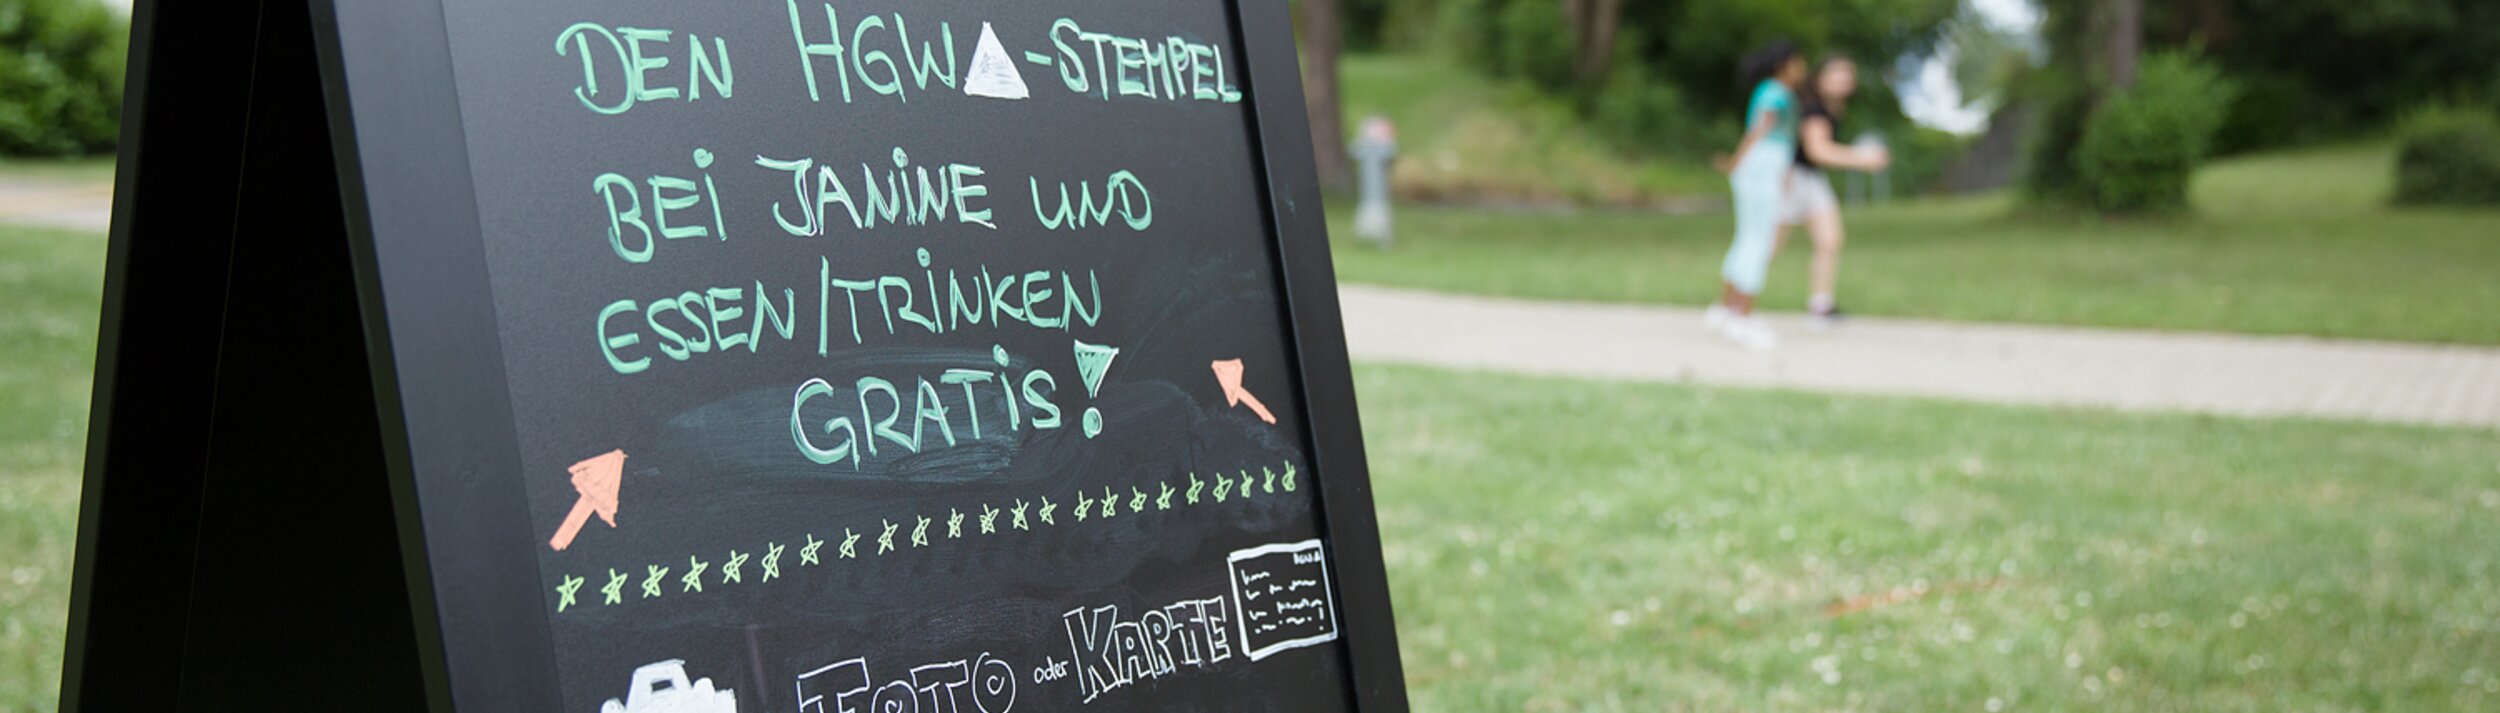 DEN HGW▲-STEMPEL
BEI JANINE UND
ESSEN/TRINKEN
GRATIS!
FOTO oder KARTE